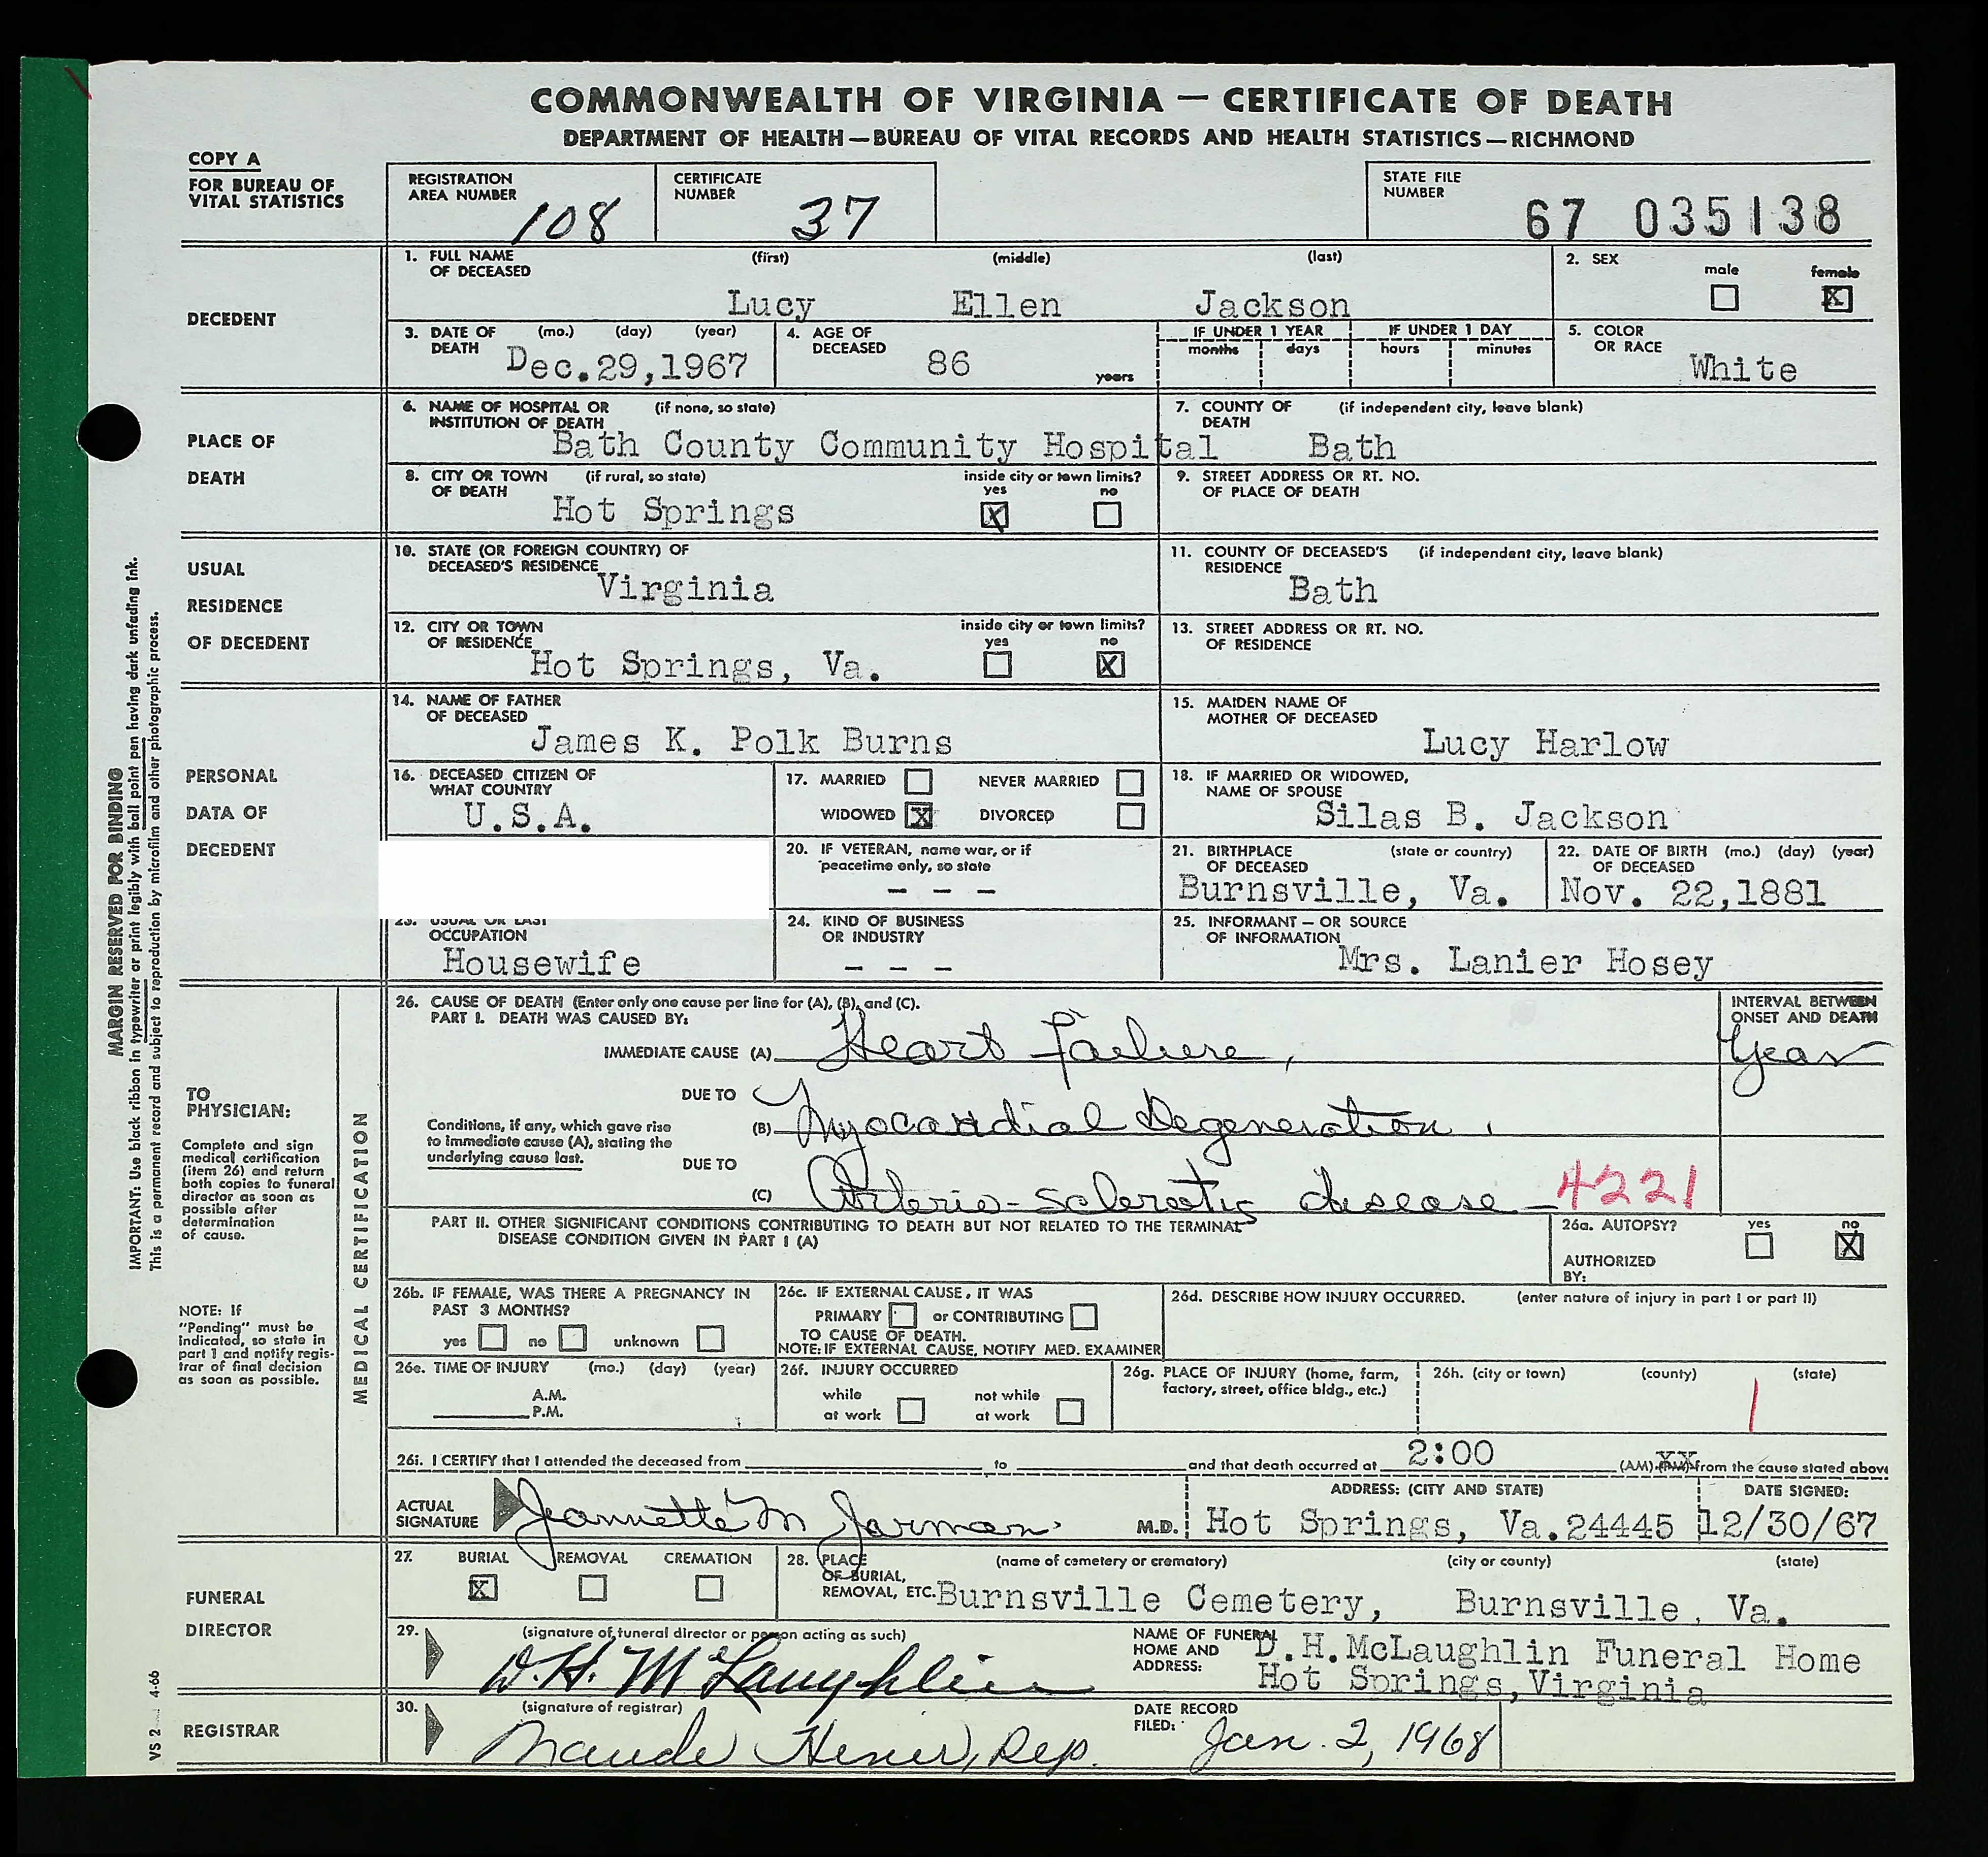 COMMONWEALTH OF VIRGINIA — CERTIFICATE OF DEATH
DEPARTMENT OF HEALTH—BUREAU OF VITAL RECORDS AND HEALTH STATISTICS—RICHMOND
COPY A
FOR BUREAU OF
VITAL STATISTICS
REGISTRATION
AREA NUMBER 108
CERTIFICATE
NUMBER 37
STATE FILE
NUMBER 67 035138
DECEDENT
1. FULL NAME (first) (middle) (last)
OF DECEASED
Lucy Ellen Jackson
2. SEX male female
X
3. DATE OF (mo.) (day) (year)
DEATH Dec.29,1967
4. AGE OF
DECEASED 86 years
IF UNDER 1 YEAR
months days
IF UNDER 1 DAY
hours minutes
5. COLOR
OR RACE White
PLACE OF
DEATH
6. NAME OF HOSPITAL OR (if none, so state)
INSTITUTION OF DEATH
Bath County Community Hospital
7. COUNTY OF (if independent city, leave blank)
DEATH
Bath
8. CITY OR TOWN (if rural, so state)
OF DEATH
Hot Springs
inside city or town limits?
yes no
X
9. STREET ADDRESS OR RT. NO.
OF PLACE OF DEATH
USUAL
RESIDENCE
OF DECEDENT
10. STATE (OR FOREIGN COUNTRY) OF
DECEASED'S RESIDENCE
Virginia
11. COUNTY OF DECEASED'S (if independent city, leave blank)
RESIDENCE
Bath
12. CITY OR TOWN
OF RESIDENCE
Hot Springs, Va.
inside city or town limits?
yes no
X
13. STREET ADDRESS OR RT. NO.
OF RESIDENCE
PERSONAL
DATA OF
DECEDENT
14. NAME OF FATHER
OF DECEASED
James K. Polk Burns
15. MAIDEN NAME OF
MOTHER OF DECEASED
Lucy Harlow
16. DECEASED CITIZEN OF
WHAT COUNTRY
U.S.A.
17. MARRIED NEVER MARRIED
WIDOWED X DIVORCED
18. IF MARRIED OR WIDOWED,
NAME OF SPOUSE
Silas B. Jackson
20. IF VETERAN, name war, or if
peacetime only, so state
- - -
21. BIRTHPLACE (state or country)
OF DECEASED
Burnsville, Va.
22. DATE OF BIRTH (mo.) (day) (year)
OF DECEASED
Nov. 22,1881
23. USUAL OR LAST
OCCUPATION
Housewife
24. KIND OF BUSINESS
OR INDUSTRY
- - -
25. INFORMANT — OR SOURCE
OF INFORMATION
Mrs. Lanier Hosey
MARGIN RESERVED FOR BINDING
IMPORTANT: Use black ribbon in typewriter or print legibly with ball point pen having dark unfading ink.
This is a permanent record and subject to reproduction by microfilm and other photographic process.
TO
PHYSICIAN:
Complete and sign
medical certification
(item 26) and return
both copies to funeral
director as soon as
possible after
determination
of cause.
NOTE: If
"Pending" must be
indicated, so state in
part 1 and notify regis-
trar of final decision
as soon as possible.
MEDICAL CERTIFICATION
26. CAUSE OF DEATH (Enter only one cause per line for (A), (B), and (C).
PART I. DEATH WAS CAUSED BY:
INTERVAL BETWEEN
ONSET AND DEATH
IMMEDIATE CAUSE (A) Heart Failure, Year
DUE TO
Conditions, if any, which gave rise
to immediate cause (A), stating the
underlying cause last.
(B) Myocardial Degeneration,
DUE TO
(C) Arterio-sclerotic disease - 4221
PART II. OTHER SIGNIFICANT CONDITIONS CONTRIBUTING TO DEATH BUT NOT RELATED TO THE TERMINAL
DISEASE CONDITION GIVEN IN PART I (A)
26a. AUTOPSY? yes no
X
AUTHORIZED
BY:
26b. IF FEMALE, WAS THERE A PREGNANCY IN
PAST 3 MONTHS?
yes no unknown
26c. IF EXTERNAL CAUSE, IT WAS
PRIMARY or CONTRIBUTING
TO CAUSE OF DEATH.
NOTE: IF EXTERNAL CAUSE, NOTIFY MED. EXAMINER
26d. DESCRIBE HOW INJURY OCCURRED. (enter nature of injury in part I or part II)
26e. TIME OF INJURY (mo.) (day) (year)
A.M.
P.M.
26f. INJURY OCCURRED
while not while
at work at work
26g. PLACE OF INJURY (home, farm,
factory, street, office bldg., etc.)
26h. (city or town) (county) (state)
26i. I CERTIFY that I attended the deceased from to and that death occurred at 2:00 (AM) (PM) from the cause stated above
XX
ACTUAL
SIGNATURE Jeannette M Jarman M.D.
ADDRESS: (CITY AND STATE)
Hot Springs, Va.24445
DATE SIGNED:
12/30/67
FUNERAL
DIRECTOR
27. BURIAL REMOVAL CREMATION
X
28. PLACE (name of cemetery or crematory) (city or county) (state)
OF BURIAL,
REMOVAL, ETC. Burnsville Cemetery, Burnsville, Va.
29. (signature of funeral director or person acting as such)
D. H. McLaughlin
NAME OF FUNERAL
HOME AND
ADDRESS:
D.H.McLaughlin Funeral Home
Hot Springs, Virginia
REGISTRAR
30. (signature of registrar)
Maude Dep.
DATE RECORD
FILED: Jan. 2, 1968
VS 2 4-66